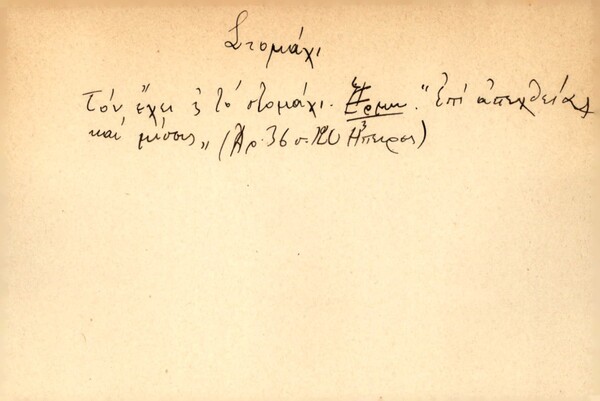 Στομάχι
Τόν ἔχει 'ς τό στομάχι. Ἑρμ. "Ἐπί ἀπεχθείας
καί μίσους,, (Ἀρ. 36 σ. 120 Ἤπειρος)